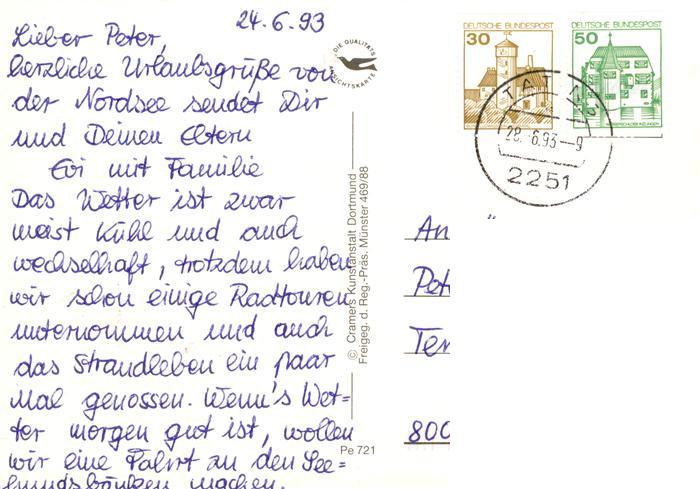 24.6.93
Lieber Peter,
herzliche Urlaubsgrüße von
der Nordsee sendet Dir
und Deinen Eltern
Evi mit Familie
Das Wetter ist zwar
meist kühl und auch
wechselhaft, trotzdem haben
wir schon einige Radtouren
unternommen und auch
das Strandleben ein paar
Mal genossen. Wenn's Wet=
ter morgen gut ist, wollen
wir eine Fahrt zu den See=
hundsbänken machen.
DIE QUALITÄTS
ANSICHTSKARTE
© Cramers Kunstanstalt Dortmund
Freigeg. d. Reg.-Präs. Münster 469/88
Pe 721
DEUTSCHE BUNDESPOST
30
DEUTSCHE BUNDESPOST
50
28.6.93-9
2251
An
Pet
Ter
800